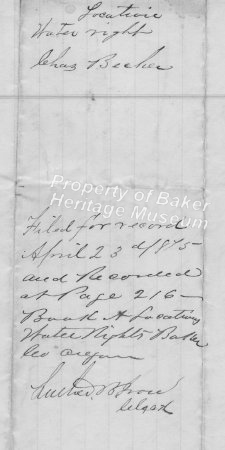 Location
Water right
Chas Becker
Property of Baker
Heritage Museum
Filed for record
April 23 d 1875
and Recorded
at Page 216 —
Book A Location
Water Rights Baker
Co Oregon
Clerk